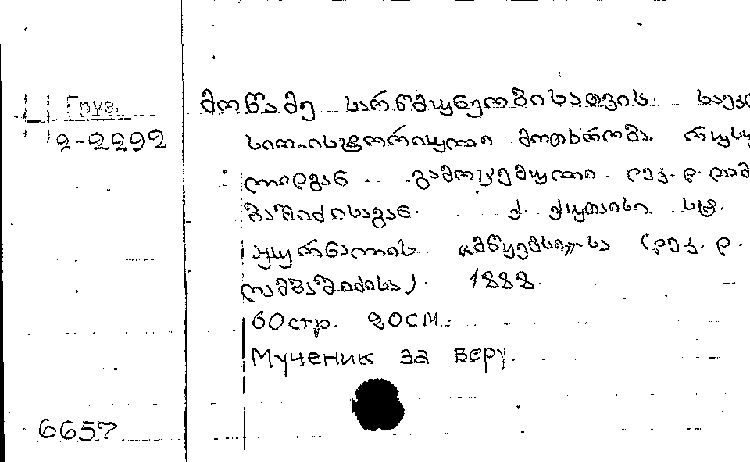 Груз.
2-2292
მოწამე სარწმუნოებისათვის. საეკ
სიო-ისტორიული მოთხრობა. რუსუ
ლიდგან გამოცემული დეკ. დ. ღამ
ბაშიძისაგან. ქ. ქუთაისი. სტ.
ჟურნალის „მწყემსი„-სა (დეკ. დ.
ღამბაშიძისა). 1888.
60стр. 20см.
Мученик за веру.
6657